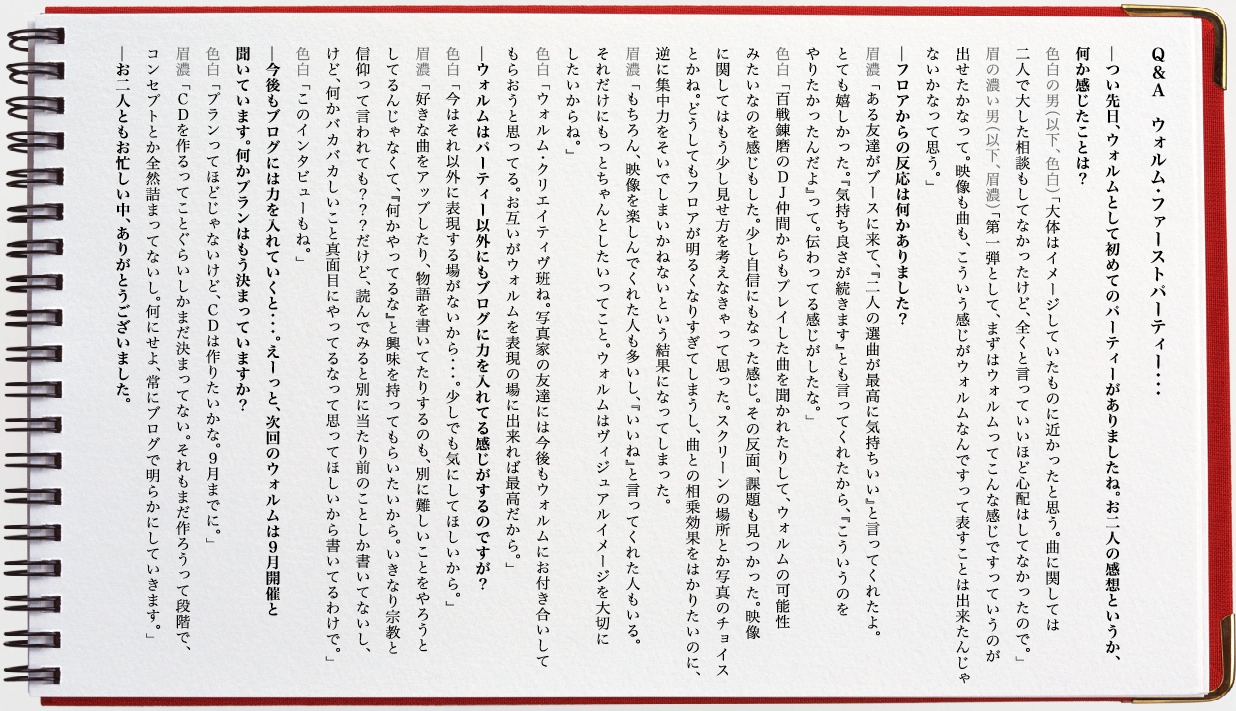 Q&A　ウォルム・ファーストパーティー・・・
―つい先日、ウォルムとして初めてのパーティーがありましたね。お二人の感想というか、
何か感じたことは？
色白の男(以下、色白)「大体はイメージしていたものに近かったと思う。曲に関しては
二人で大した相談もしてなかったけど、全くと言っていいほど心配はしてなかったので。」
眉の濃い男(以下、眉濃)「第一弾として、まずはウォルムってこんな感じですっていうのが
出せたかなって。映像も曲も、こういう感じがウォルムなんですって表すことは出来たんじゃ
ないかなって思う。」
―フロアからの反応は何かありました？
眉濃「ある友達がブースに来て、『二人の選曲が最高に気持ちいい』と言ってくれたよ。
とても嬉しかった。『気持ち良さが続きます』とも言ってくれたから、『こういうのを
やりたかったんだよ』って。伝わってる感じがしたな。」
色白「百戦錬磨のDJ仲間からもプレイした曲を聞かれたりして、ウォルムの可能性
みたいなのを感じもした。少し自信にもなった感じ。その反面、課題も見つかった。映像
に関してはもう少し見せ方を考えなきゃって思った。スクリーンの場所とか写真のチョイス
とかね。どうしてもフロアが明るくなりすぎてしまうし、曲との相乗効果をはかりたいのに、
逆に集中力をそいでしまいかねないという結果になってしまった。
眉濃「もちろん、映像を楽しんでくれた人も多いし、『いいね』と言ってくれた人もいる。
それだけにもっとちゃんとしたいってこと。ウォルムはヴィジュアルイメージを大切に
したいからね。」
色白「ウォルム・クリエイティヴ班ね。写真家の友達には今後もウォルムにお付き合いして
もらおうと思ってる。お互いがウォルムを表現の場に出来れば最高だから。」
―ウォルムはパーティー以外にもブログに力を入れてる感じがするのですが？
色白「今はそれ以外に表現する場がないから・・・。少しでも気にしてほしいから。」
眉濃「好きな曲をアップしたり、物語を書いてたりするのも、別に難しいことをやろうと
してるんじゃなくて、『何かやってるな』と興味を持ってもらいたいから。いきなり宗教と
信仰って言われても？？？だけど、読んでみると別に当たり前のことしか書いてないし、
けど、何かバカバカしいこと真面目にやってるなって思ってほしいから書いてるわけで。」
色白「このインタビューもね。」
―今後もブログには力を入れていくと・・・。えーっと、次回のウォルムは9月開催と
聞いています。何かプランはもう決まっていますか？
色白「プランってほどじゃないけど、CDは作りたいかな。9月までに。」
眉濃「CDを作るってことぐらいしかまだ決まってない。それもまだ作ろうって段階で、
コンセプトとか全然詰まってないし。何にせよ、常にブログで明らかにしていきます。」
―お二人ともお忙しい中、ありがとうございました。